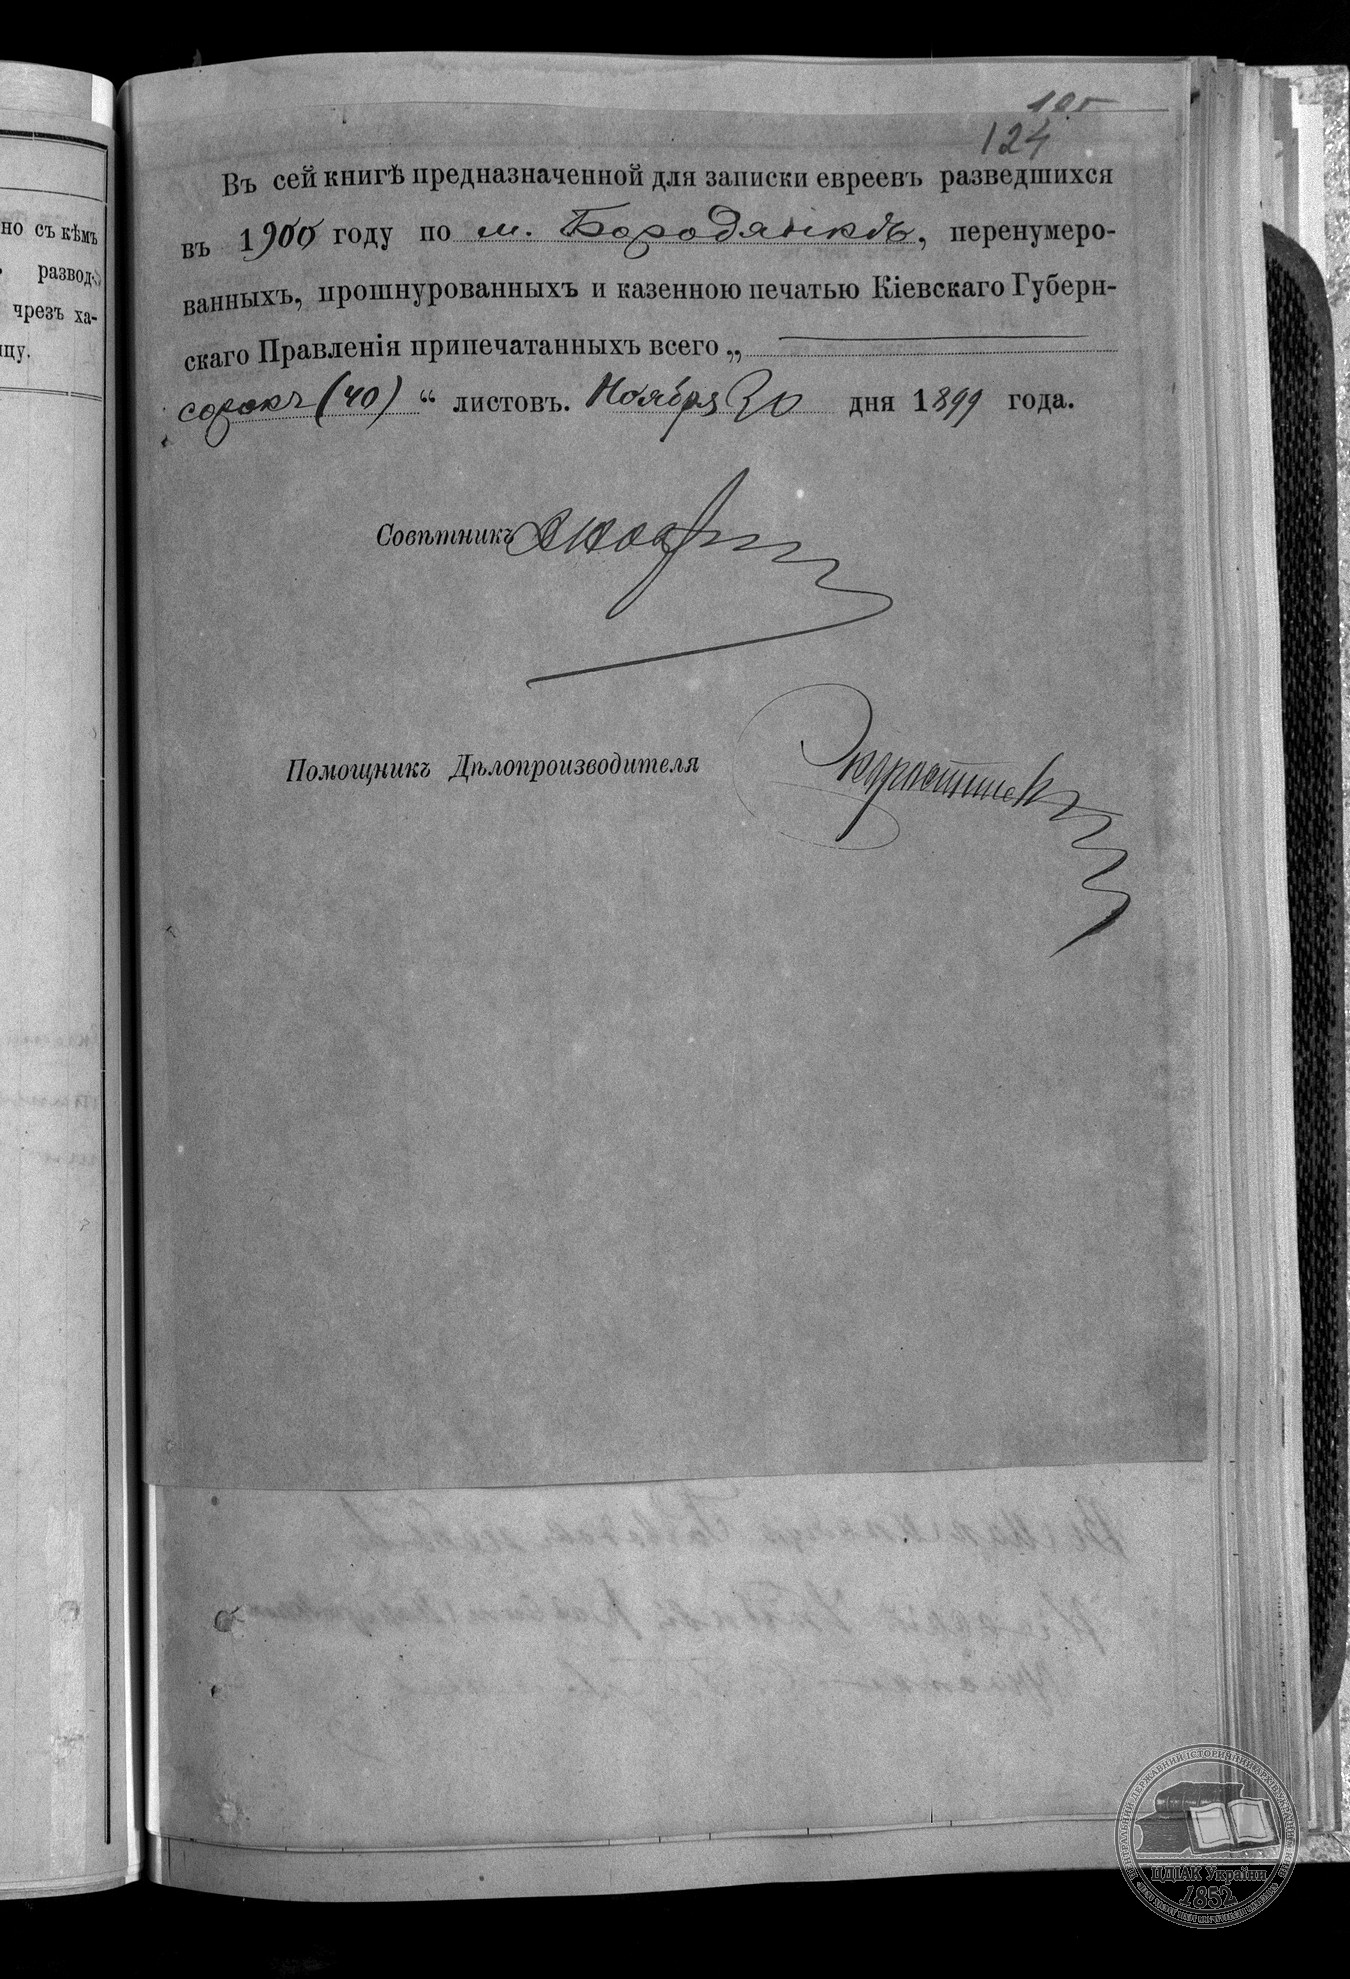 124
Въ сей книгѣ предназначенной для записки евреевъ разведшихся
въ 1900 году по м. Бородянкѣ, перенумеро-
ванныхъ, прошнурованныхъ и казенною печатью Кіевскаго Губерн-
скаго Правленія припечатанныхъ всего „
сорокъ (40) “ листовъ. Ноября 30 дня 1899 года.
Совѣтникъ
Помощникъ Дѣлопроизводителя
но съ кѣмъ
развод-
чрезъ ха-
ицу.
ЦДІАК України
1852